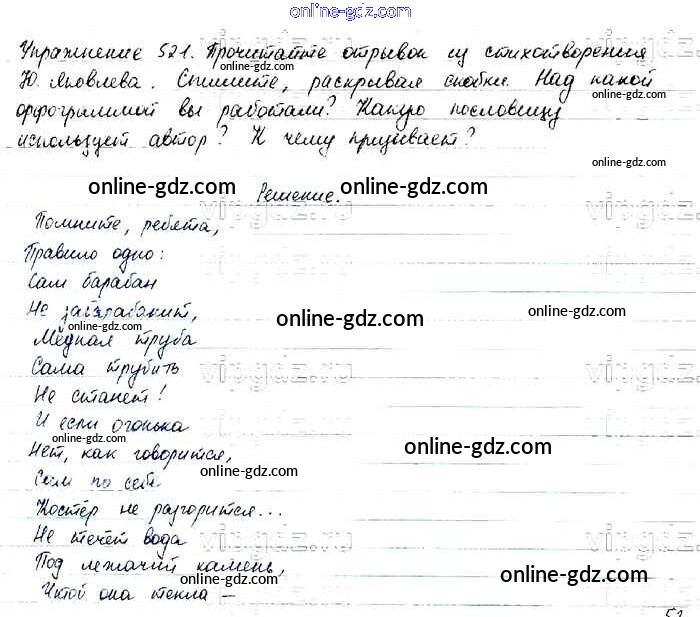 online-gdz.com
Упражнение 521. Прочитайте отрывок из стихотворения
Ю. Яковлева. Спишите, раскрывая скобки. Над какой
орфограммой вы работали? Какую пословицу
использует автор? К чему призывает?
online-gdz.com
online-gdz.com
online-gdz.com
Решение.
Помните, ребята,
Правило одно:
Сам барабан
Не забарабанит,
online-gdz.com
online-gdz.com
online-gdz.com
Медная труба
Сама трубить
Не станет!
И если огонька
online-gdz.com
Нет, как говорится,
online-gdz.com
online-gdz.com
Сам по себе
Костёр не разгорится...
Не течёт вода
Под лежачий камень,
online-gdz.com
online-gdz.com
Чтоб она текла –
vipgdz.ru